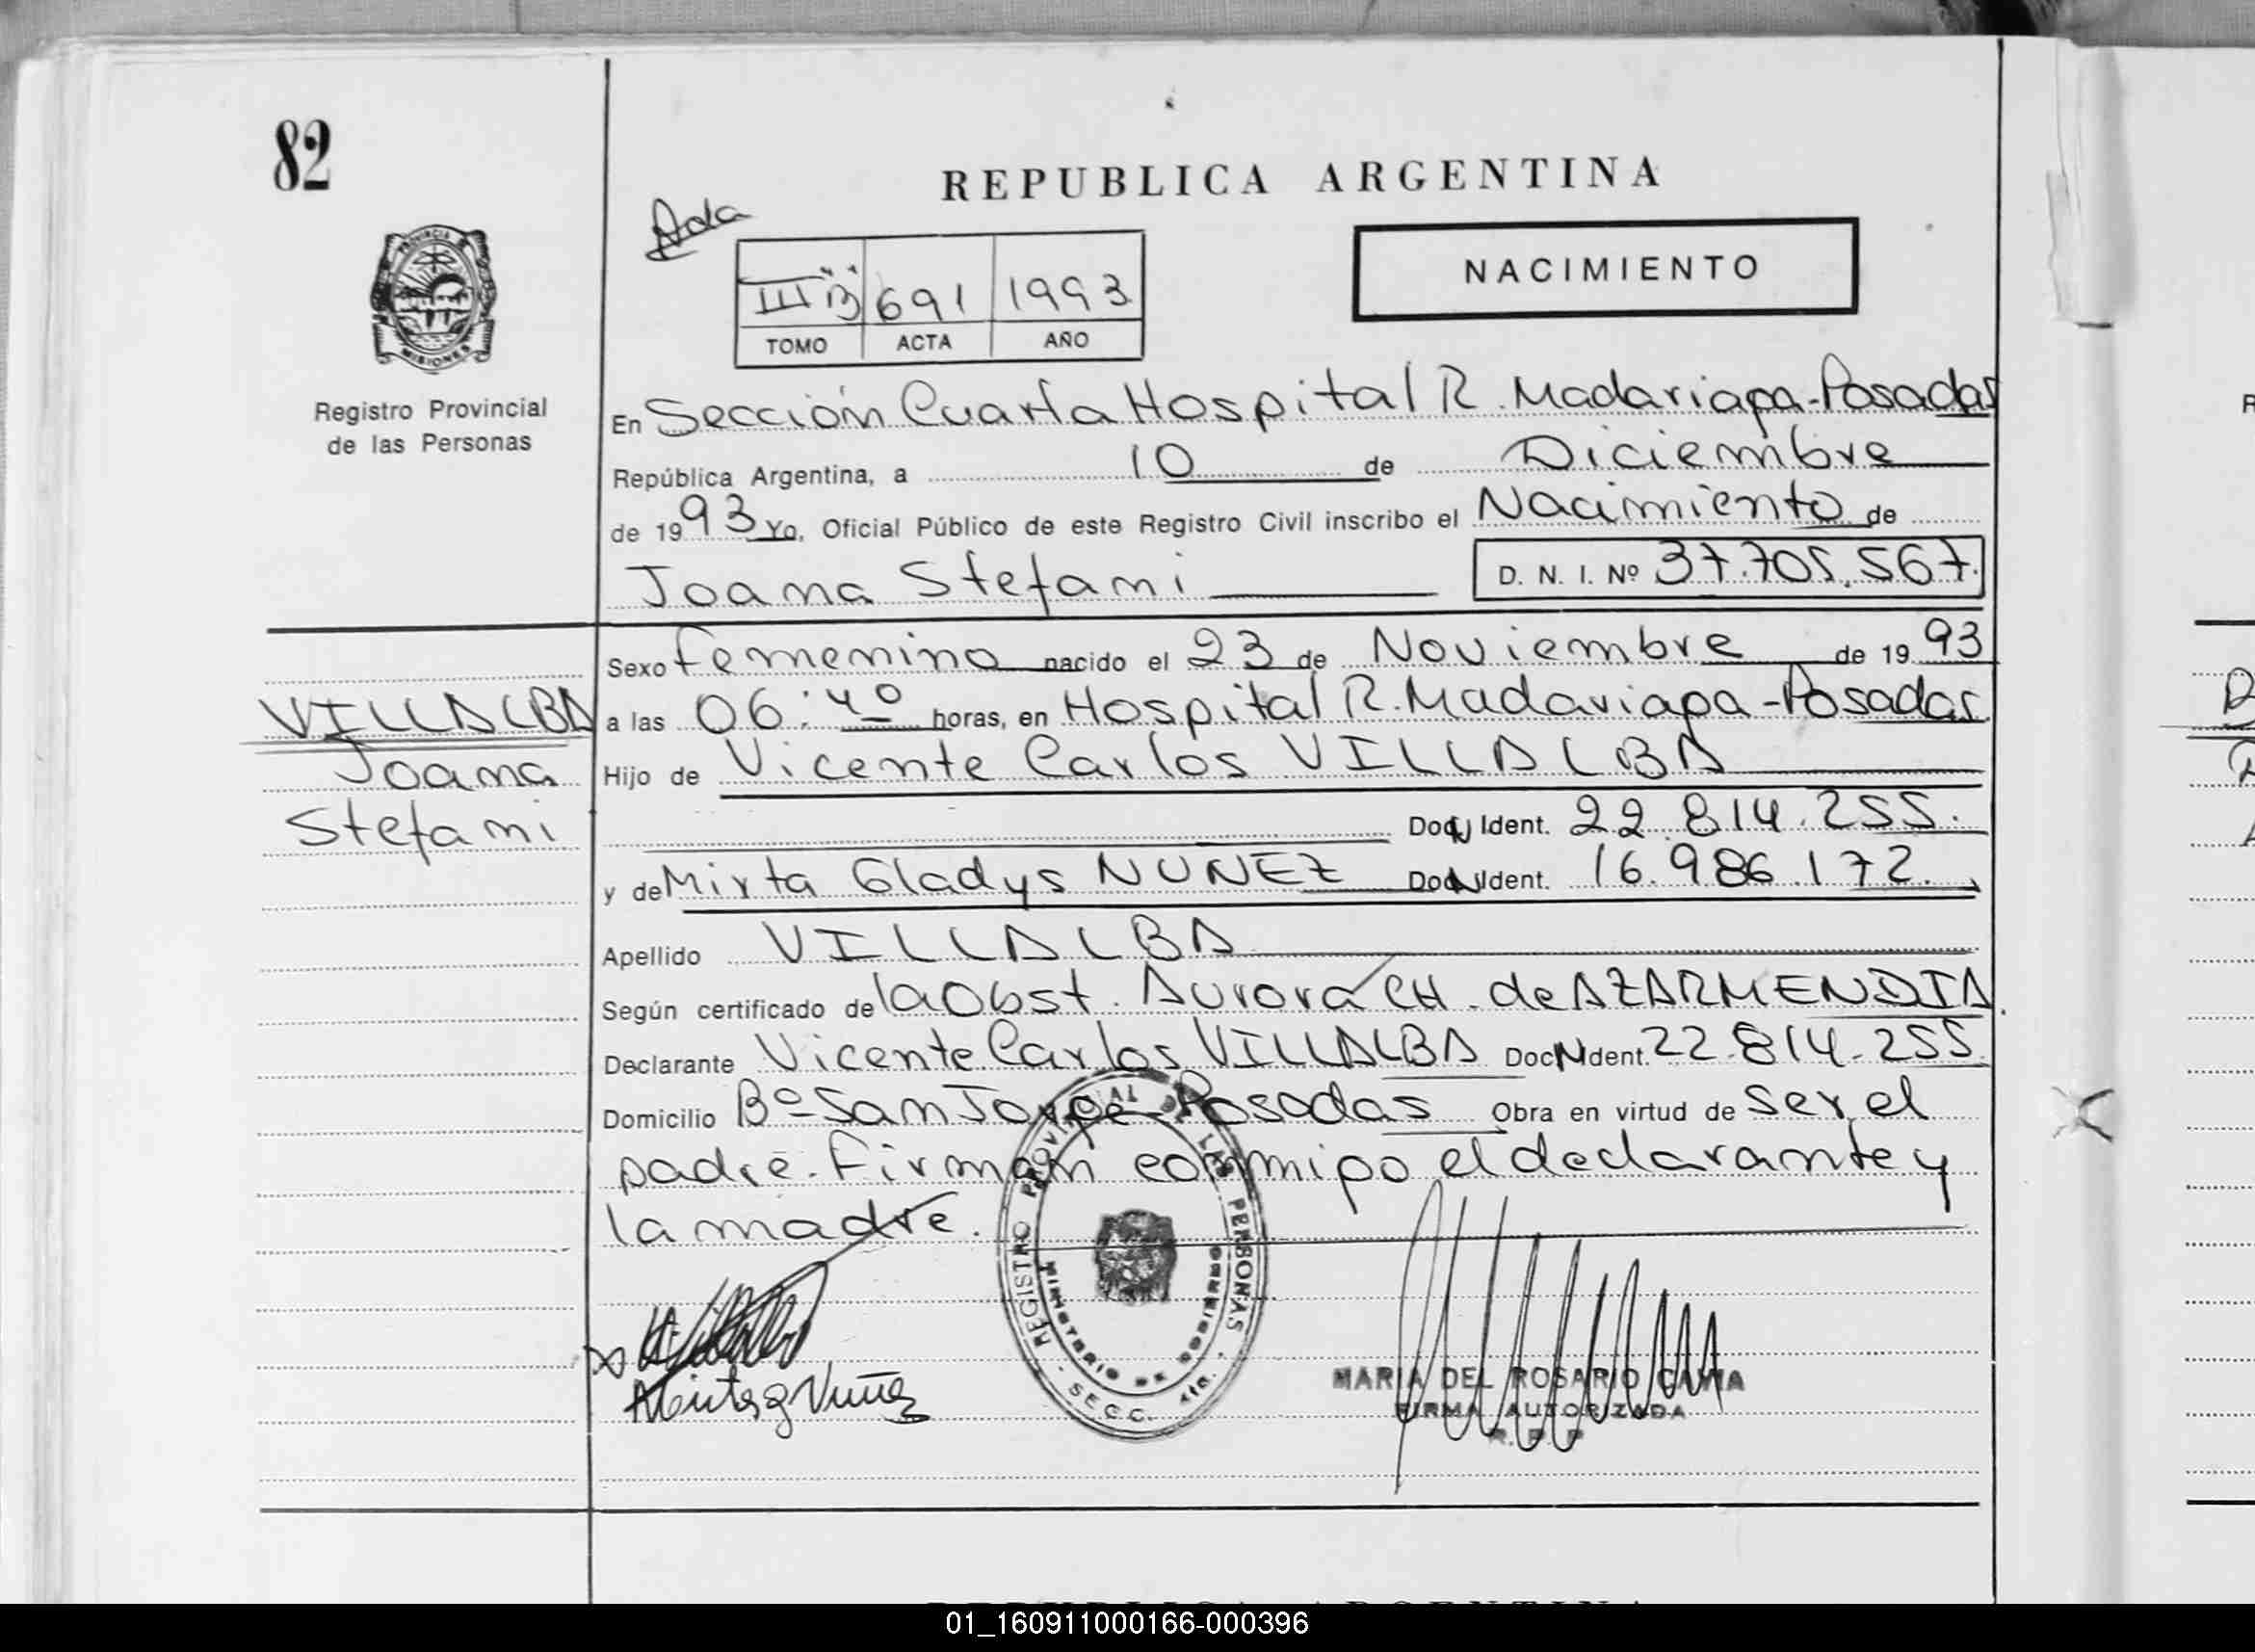 82
REPUBLICA ARGENTINA
PROVINCIA
MISIONES
III "B" 691 1993
TOMO ACTA AÑO
NACIMIENTO
Registro Provincial
de las Personas
En Sección Cuarta Hospital R. Madariaga-Posadas
República Argentina, a 10 de Diciembre
de 1993 Yo, Oficial Público de este Registro Civil inscribo el Nacimiento de
Joana Stefani D. N. I. Nº 37.705.567.
VILLALBA
Joana
Stefani
Sexo femenino nacido el 23 de Noviembre de 1993
a las 06:40 horas, en Hospital R. Madariaga-Posadas
Hijo de Vicente Carlos VILLALBA
Doc. Ident. 22.814.255.
y de Mirta Gladys NUÑEZ Doc. Ident. 16.986.172.
Apellido VILLALBA
Según certificado de la Obst. Aurora CH. de AZARMENDIA
Declarante Vicente Carlos VILLALBA Doc. Ident. 22.814.255
Domicilio Bº San Jorge-Posadas Obra en virtud de ser el
padre. Firman conmigo el declarante y
la madre.
REGISTRO PROVINCIAL DE LAS PERSONAS
MINISTERIO DE GOBIERNO
SECC. 4ta.
MARIA DEL ROSARIO
FIRMA AUTORIZADA
R.P.P
REPUBLICA ARGENTINA
01_160911000166-000396